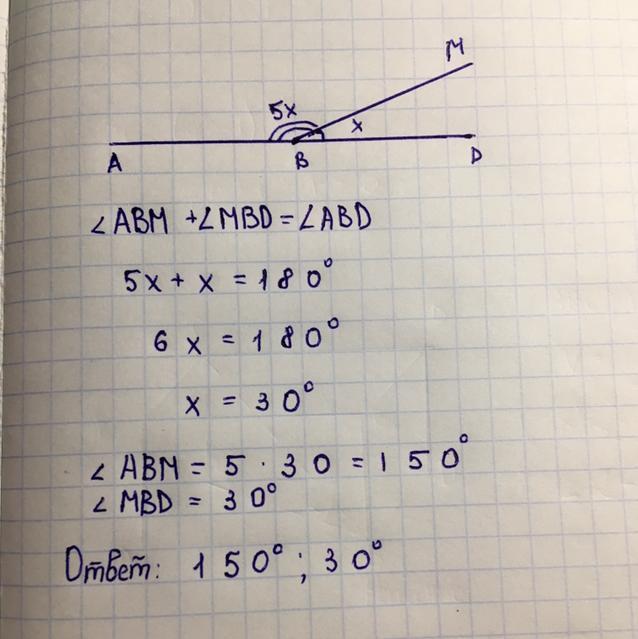 M
5x
x
A B D
∠ABM + ∠MBD = ∠ABD
5x + x = 180°
6x = 180°
x = 30°
∠ABM = 5 · 30 = 150°
∠MBD = 30°
Ответ: 150°; 30°